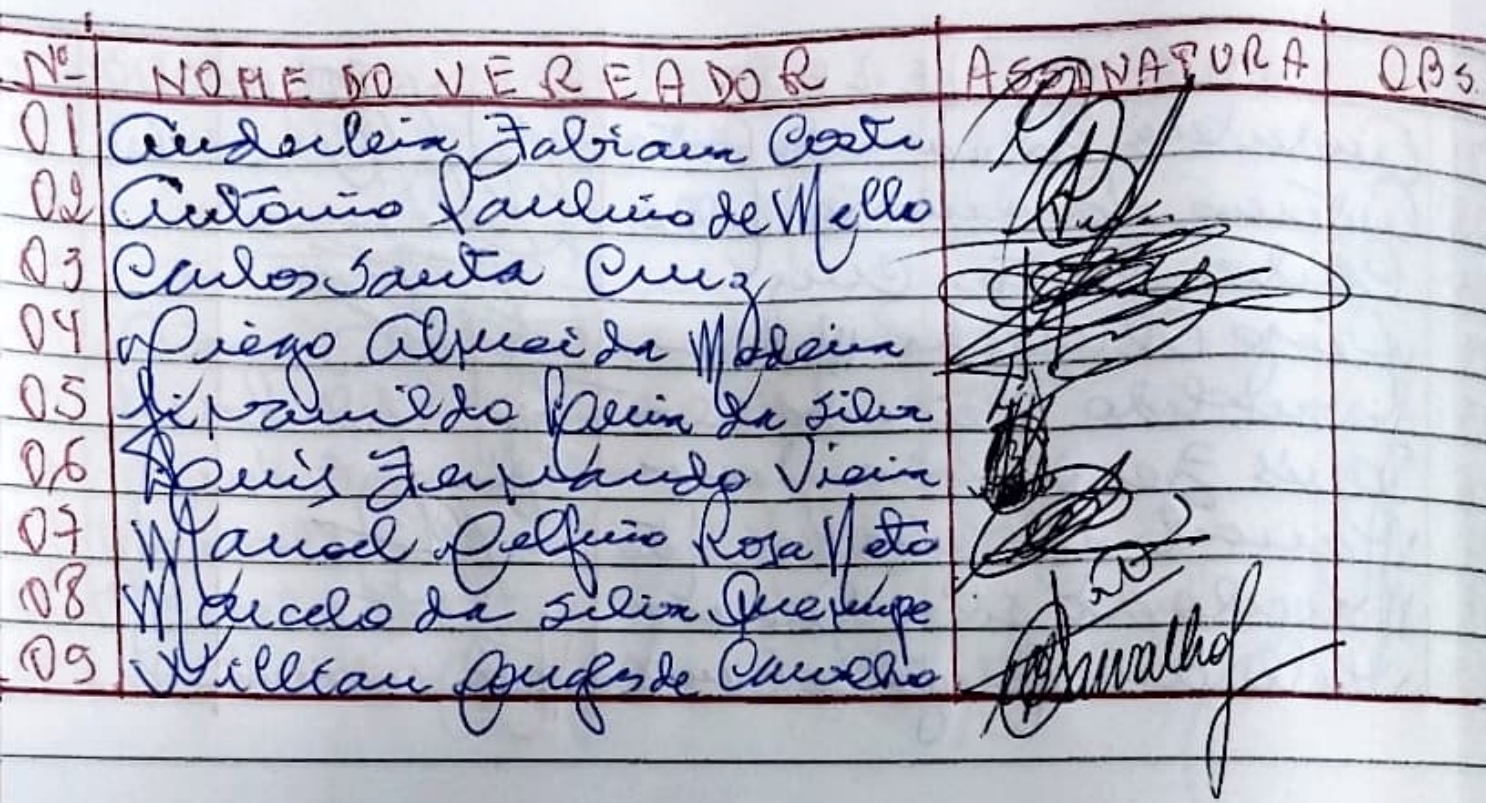 Nº NOME DO VEREADOR ASSINATURA OBS.
01 Anderleia Fabiana Costa
02 Antonio Paulino de Mello
03 Carlos Santa Cruz
04 Diego Almeida Madeira
05 da Silva
06 Luis Fernando Vieira
07 Manoel Delfino Rosa Neto
08 Marcelo da Silva
09 Willian de Carvalho Carvalho